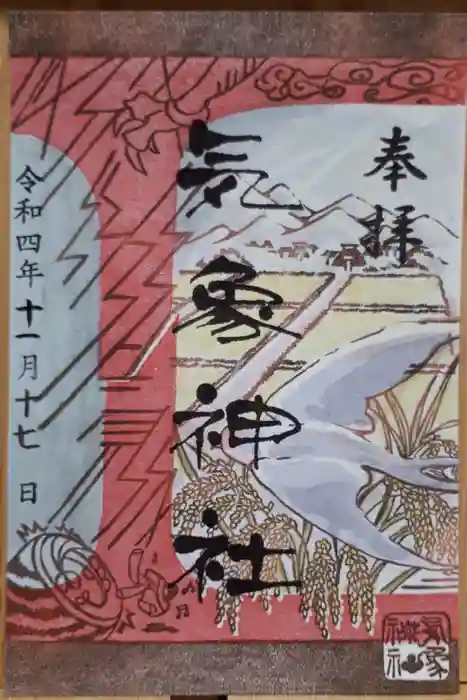 奉拝
気象神社
令和四年十一月十七日
気象神社